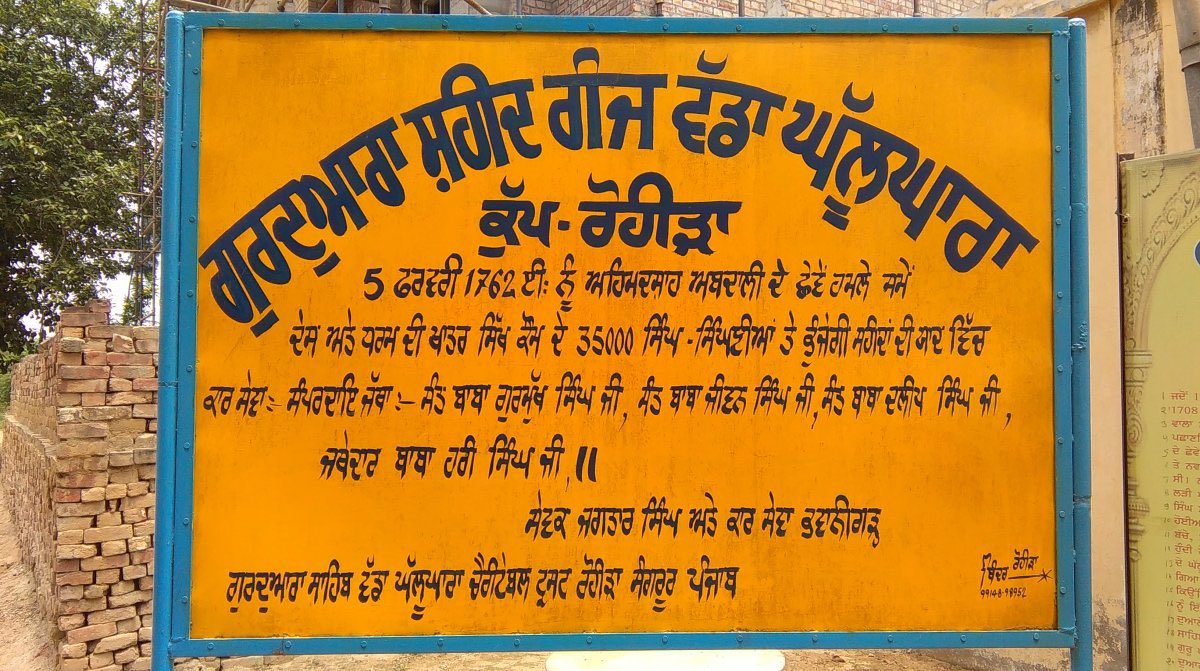 ਗੁਰਦੁਆਰਾ ਸ਼ਹੀਦ ਗੰਜ ਵੱਡਾ ਘੱਲੂਘਾਰਾ
ਕੁੱਪ-ਰੋਹੀੜਾ
5 ਫਰਵਰੀ 1762 ਈ: ਨੂੰ ਅਹਿਮਦਸ਼ਾਹ ਅਬਦਾਲੀ ਦੇ ਛੇਵੇਂ ਹਮਲੇ ਸਮੇਂ
ਦੇਸ ਅਤੇ ਧਰਮ ਦੀ ਖਾਤਰ ਸਿੱਖ ਕੌਮ ਦੇ 35000 ਸਿੰਘ-ਸਿੰਘਣੀਆਂ ਤੇ ਭੁਜੰਗੀ ਸ਼ਹਿਦਾਂ ਦੀ ਯਾਦ ਵਿੱਚ
ਕਾਰ ਸੇਵਾ:- ਸੰਪਰਦਾਇ ਜੱਥਾ:- ਸੰਤ ਬਾਬਾ ਗੁਰਮੁੱਖ ਸਿੰਘ ਜੀ, ਸੰਤ ਬਾਬਾ ਜੀਵਨ ਸਿੰਘ ਜੀ, ਸੰਤ ਬਾਬਾ ਦਲੀਪ ਸਿੰਘ ਜੀ,
ਜਥੇਦਾਰ ਬਾਬਾ ਹਰੀ ਸਿੰਘ ਜੀ,॥
ਸੇਵਕ ਜਗਤਾਰ ਸਿੰਘ ਅਤੇ ਕਾਰ ਸੇਵਾ ਭਵਾਨੀਗੜ੍ਹ
ਗੁਰਦੁਆਰਾ ਸਾਹਿਬ ਵੱਡਾ ਘੱਲੂਘਾਰਾ ਚੈਰੀਟੇਬਲ ਟ੍ਰਸਟ ਰੋਹੀੜਾ ਸੰਗਰੂਰ ਪੰਜਾਬ
ਬਿੰਦਰ ਰੋਹੀੜਾ
99148-98952
ਜਦੋਂ 1
1708
ਵਾਲਾ